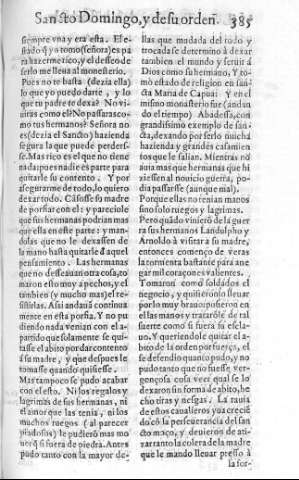 Sancto Domingo, y de su orden. 385
siempre vna y era esta. El e-
stado q̃ yo tomo (señora) es pa
ra hazerme rico, y el desseo de
serlo me lleua al monesterio.
Pues no te basta (dezia ella)
lo que yo puedo darte, y lo
que tu padre te dexa? No vi-
uiras como el? No passaras co-
mo tus hermanos? Señora no
es (dezia el Sancto) hazienda
segura la que puede perders-
se. Mas rico es el que no tiene
nada: pues nadie es parte para
quitarle su contento. Y por
assegurarme de todo, lo quiero
dexar todo. Cãsosse su madre
de porfiar con el: y pareciole
que sus hermanas podrian mas
que ella en este parte: y man-
dolas que no le dexassen de
la mano hasta quitarle aquel
pensamiento. Las hermanas
que no desseauan otra cosa, to
maron esto muy a pechos, y el
tambien (y mucho mas) el re-
sistirlas. Assi andauã continua
mente en esta porfia. Y no pu
diendo nada venian con el a-
partido que solamente se qui-
tasse el abito por dar contento
à su madre, y que despues le
tomasse quando quisiesse.
Mas tampoco se pudo acabar
con el esto. Ni los regalos y
lagrimas de sus hermanas, ni
el amor que las tenia, ni los
muchos ruegos (al parecer
piadosos) le pudierõ mas mo
uer q̃ si fuera de piedra. Antes
pudo tanto con la mayor de-
llas que mudada del todo y
trocada se determinò à dexar
tambien el mundo y seruir à
Dios como su hermano, Y to-
mò estado de religion en san-
cta Maria de Capua: Y en el
mismo monasterio fue (andan
do el tiempo) Abadessa, con
grandissimo exemplo de san-
cta, dexando por serlo mucha
hazienda y grandes casamien
tos que le salian. Mientras no
auia mas que hermanas que hi
ziessen al nouicio guerra, po-
dia passarsse (aunque mal).
Porque ellas no tenian manos
sino solo ruegos y lagrimas.
Pero quãdo vinierõ de la gue
rra sus hermanos Landulpho y
Arnoldo à visitar a su madre,
entonces començo de veras
la tormenta bastante para ane
gar mil coraçones valientes.
Tomaron como soldados el
negocio, y quisierõ selo lleuar
por lo muy brauo: pusieron en
el las manos y tratarõle de tal
suerte como si fuera su escla-
uo. Y queriendole quitar el a-
bito de la orden por fuerça, el
se defendio quanto pudo, y no
pudo tanto que no fuesse ver-
gonçosa cosa veer qual se lo
dexaron sin forma de abito, he
cho tiras y nesgas. La rauia
de estos caualleros yua crecie
do cõ la perseuerancia del san
cto moço, y deuieron de ati-
zar tanto la colera de la madre
que le mando lleuar presso à
la for-